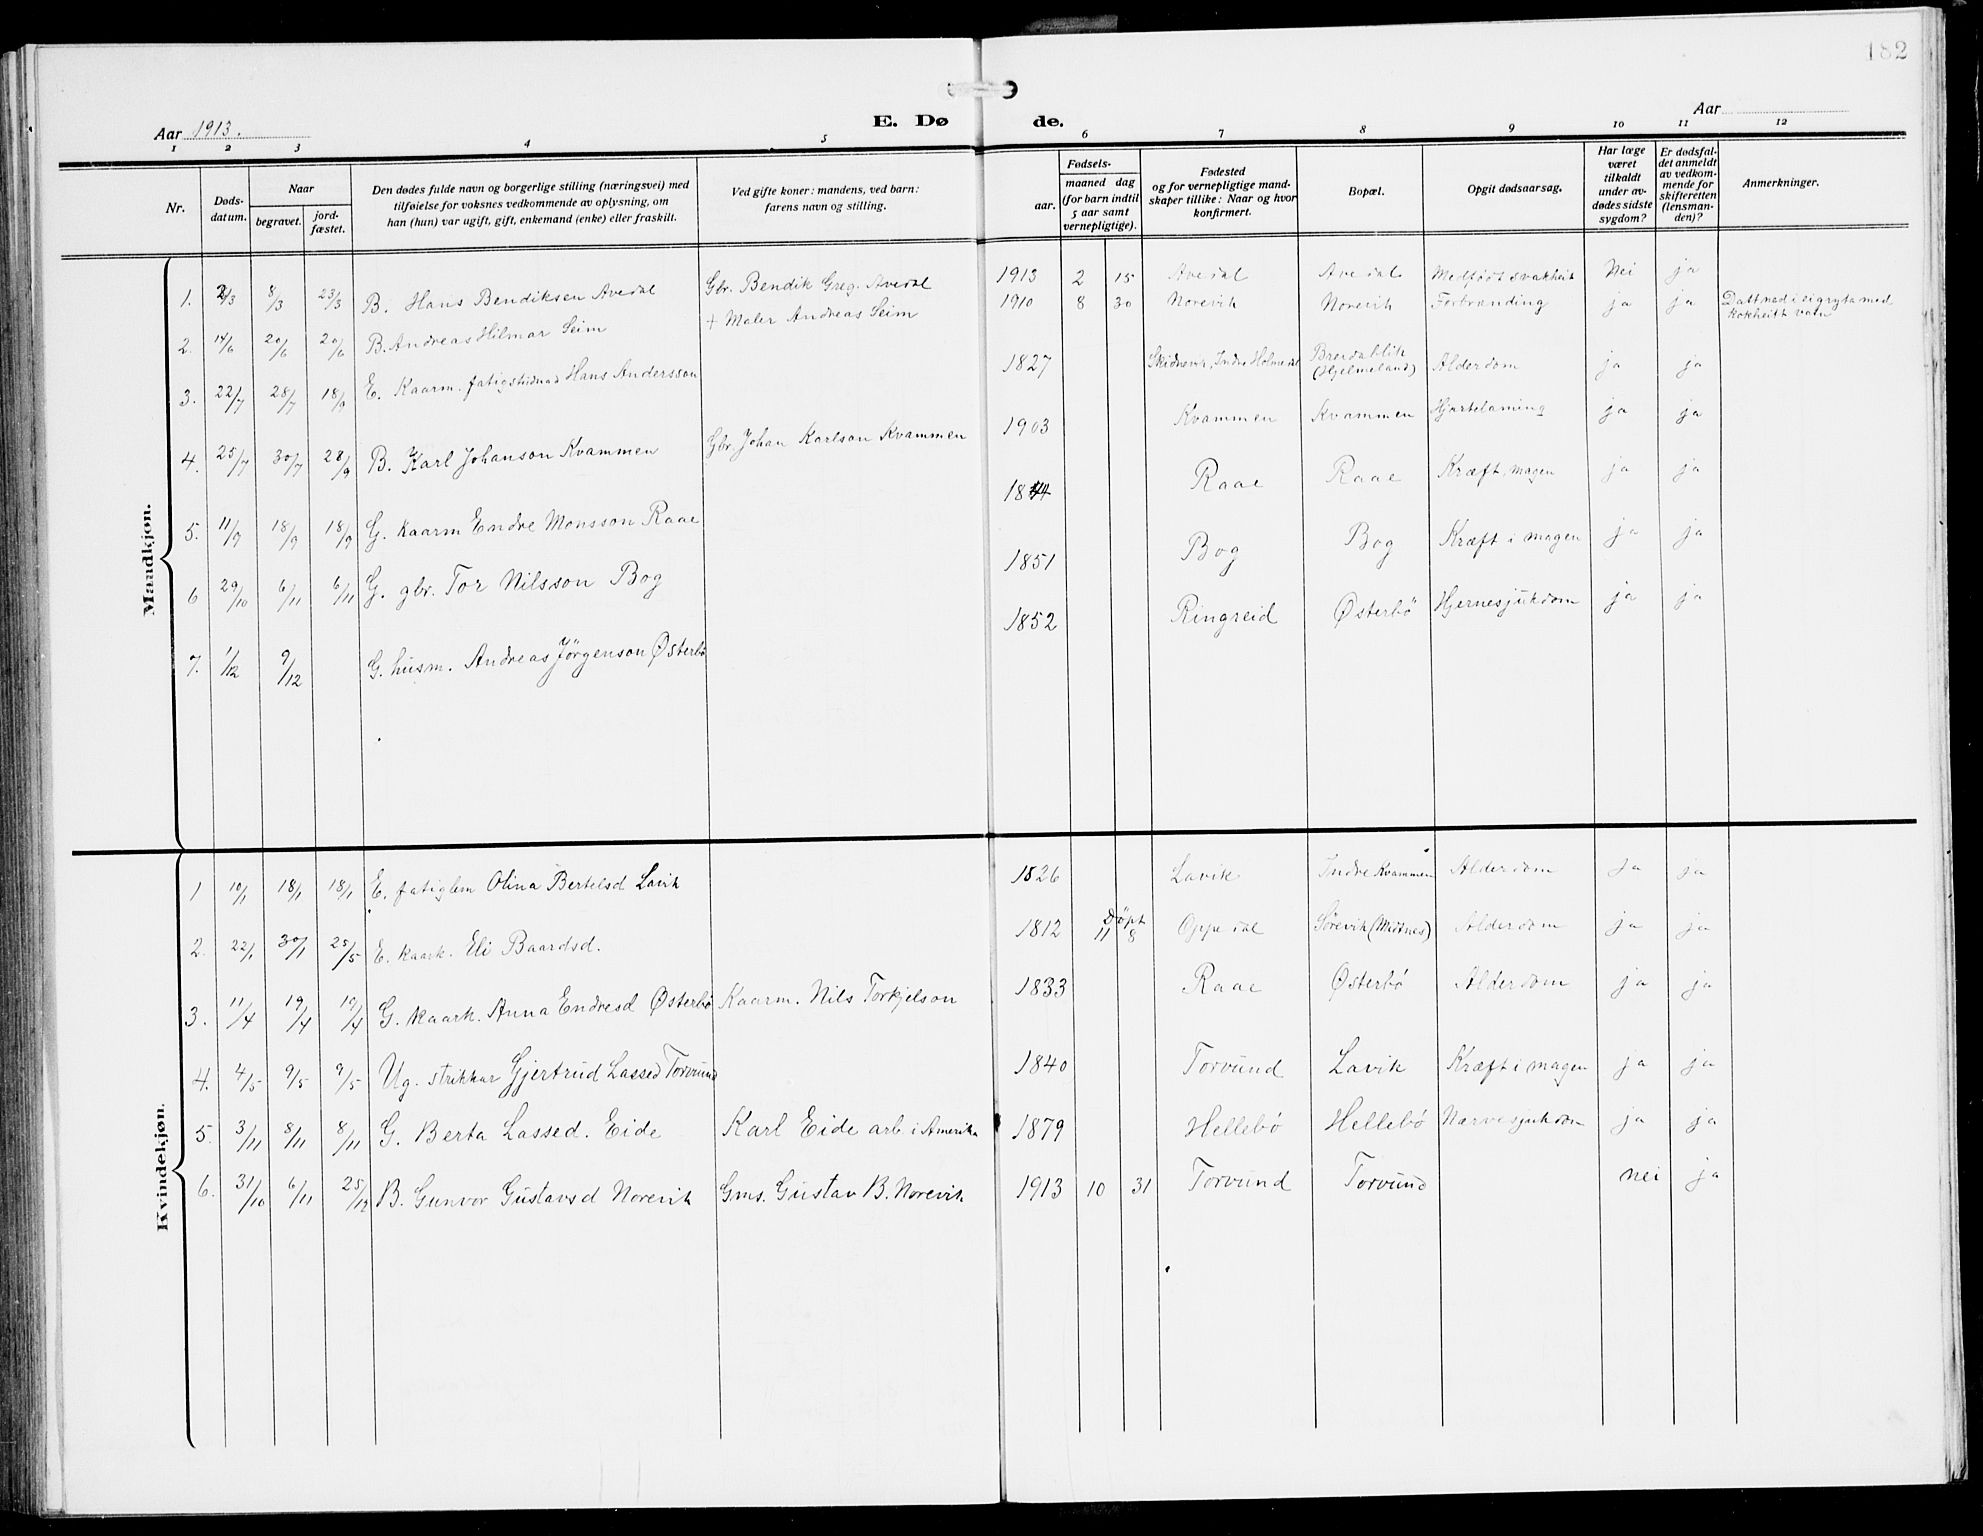 182
Aar 1913.
E. Dø de.
Aar
1 2 3 4 5 6 7 8 9 10 11 12
Nr.
Døds-
datum.
Naar
begravet.
jord-
fæstet.
Den dødes fulde navn og borgerlige stilling (næringsvei) med
tilføielse for voksnes vedkommende av oplysning, om
han (hun) var ugift, gift, enkemand (enke) eller fraskilt.
Ved gifte koner: mandens, ved barn:
farens navn og stilling.
Fødsels-
aar.
maaned dag
(for barn indtil
5 aar samt
vernepligtige).
Fødested
og for vernepligtige mand-
skaper tillike: Naar og hvor
konfirmert.
Bopæl.
Opgit dødsaarsag.
Har læge
været
tilkaldt
under av-
dødes sidste
sygdom?
Er dødsfal-
det anmeldt
av vedkom-
mende for
skifteretten
(lensman-
den)?
Anmerkninger.
Mandkjøn.
1. 2/3 8/3 23/3 B. Hans Bendiksen Avedal Gbr. Bendik Greg. Avedal 1913 2 15 Avedal Avedal Medfødt svakheit Nei ja
2. 14/6 20/6 20/6 B. Andreas Hilmar Seim + Maler Andreas Seim 1910 8 30 Norevik Norevik Forbrænding ja ja Datt ned i ei gryta med
kokheitt vatn
3. 22/7 28/7 18/9 E. Kaarm. fatigstudnad Hans Andersson 1827 Skidnevik, Indre Holmedal Breidablik
(Hjelmeland) Alderdom ja ja
4. 25/7 30/7 28/9 B. Karl Johanson Kvammen Gbr. Johan Karlson Kvammen 1903 Kvammen Kvammen Hjartelaming ja ja
5. 11/9 18/9 18/9 G. kaarm Endre Monsson Raae 1844 Raae Raae Kræft, magen ja ja
6 29/10 6/11 6/11 G. gbr. Tor Nilsson Bog 1851 Bog Bog Kræft i magen ja ja
7. 1/12 9/12 G. husm. Andreas Jörgenson Østerbö 1852 Ringreid Østerbö Hjernesjukdom ja ja
Kvindekjøn.
1 10/1 18/1 18/1 E. fatiglem Olina Bertelsd Lavik 1826 Lavik Indre Kvammen Alderdom ja ja
2. 22/1 30/1 25/5 E. kaark. Eli Baardsd. 1812 Döpt
11 8 Oppedal Sörevik (Midtnes) Alderdom ja ja
3. 11/4 19/4 19/4 G. kaark. Anna Endresd Østerbö Kaarm. Nils Torkjelson 1833 Raae Østerbö Alderdom ja ja
4. 4/5 9/5 9/5 Ug. strikkar Gjertrud Lassed Torvund 1840 Torvund Lavik Kræft i magen ja ja
5. 3/11 8/11 8/11 G. Berta Lassed. Eide Karl Eide arb. i Amerika 1879 Hellebö Hellebö Nærvesjukdom ja ja
6. 31/10 6/11 25/12 B. Gunvor Gustavsd Norevik Gms. Gustav B. Norevik 1913 10 31 Torvund Torvund nei ja